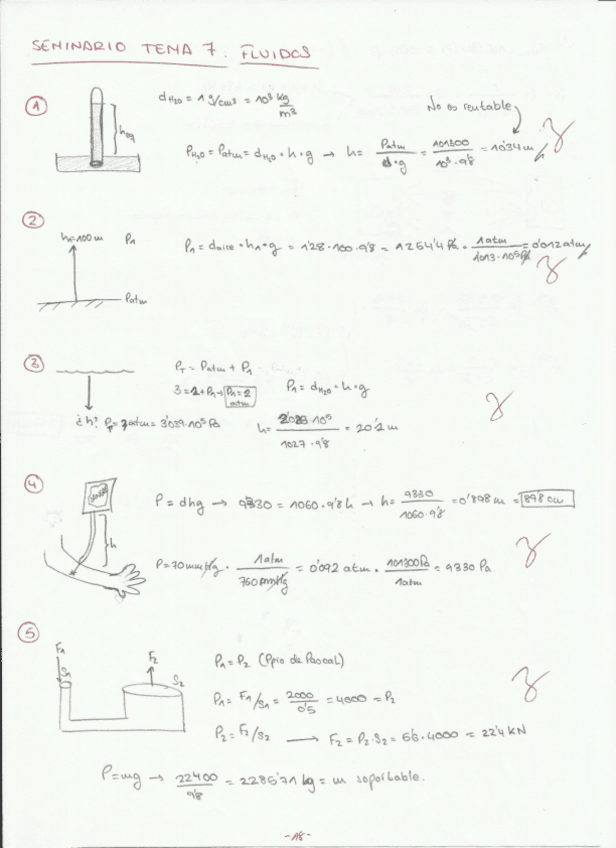 SEMINARIO TEMA 7. FLUIDOS
1
dH2O = 1 g/cm³ = 10³ kg/m³
No es rentable
PH2O = Patm = dH2O · h · g → h = Patm/d·g = 101300/10³·9'8 = 10'34 m
2
h1=100m P1
P1 = daire · h1 · g = 1'28·100·9'8 = 1254'4 Pa · 1atm/1'013·10⁵Pa = 0'012 atm
Patm
3
PT = Patm + P1
3 = 1 + P1 → P1 = 2 atm
P1 = dH2O · h · g
¿h? PT = 3 atm = 3'039·10⁵ Pa
h = /1027·9'8 = 20'1 m
4
P = dhg → 9330 = 1060·9'8h → h = 9330/1060·9'8 = 0'898 m = 89'8 cm
h
P = 70 mmHg · 1atm/760mmHg = 0'092 atm · 101300Pa/1atm = 9330 Pa
5
F1 S1 F2 S2
P1 = P2 (Ppio de Pascal)
P1 = F1/S1 = 2000/0'5 = 4000 = P2
P2 = F2/S2 → F2 = P2·S2 = 5'6·4000 = 22'4 KN
P = mg → 22400/9'8 = 2285'71 kg = m soportable.
-18-